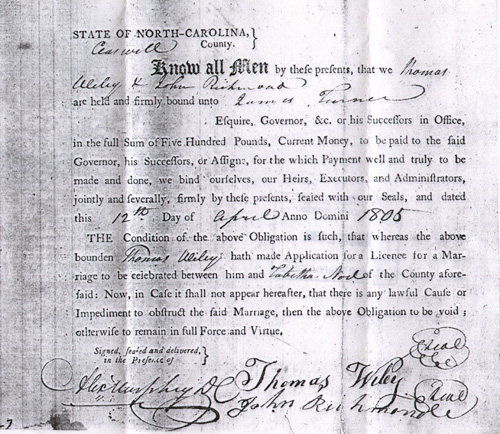 STATE OF NORTH-CAROLINA, }
Caswell County. }
Know all Men by these presents, that we Thomas
Wiley & John Richmond
are held and firmly bound unto James Turner
Esquire, Governor, &c. or his Successors in Office,
in the full Sum of Five Hundred Pounds, Current Money, to be paid to the said
Governor, his Successors, or Assigns, for the which Payment well and truly to be
made and done, we bind ourselves, our Heirs, Executors, and Administrators,
jointly and severally, firmly by these presents, sealed with our Seals, and dated
this 12th Day of April Anno Domini 1805
THE Condition of the above Obligation is such, that whereas the above
bounden Thomas Wiley hath made Application for a Licence for a Mar-
riage to be celebrated between him and Tabitha Noel of the County afore-
said: Now, in Case it shall not appear hereafter, that there is any lawful Cause or
Impediment to obstruct the said Marriage, then the above Obligation to be void;
otherwise to remain in full Force and Virtue.
Signed, sealed and delivered, }
in the Presence of }
Seal
Alex Murphey Thomas Wiley
John Richmond Seal